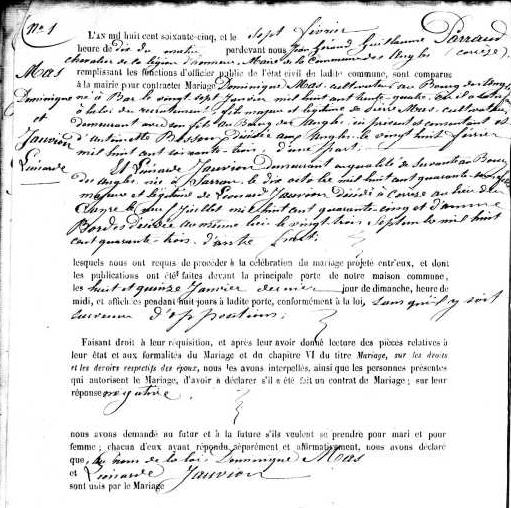 N° 1
L'AN mil huit cent soixante-cinq, et le sept février
heure de dix du matin pardevant nous Jean Géraud Guillaume Parraud
chevalier de la légion d'honneur Maire de la Commune des Angles (Corrèze)
remplissant les fonctions d'officier public de l'état civil de ladite commune, sont comparus
à la mairie pour contracter Mariage Dominique Mas, cultivateur au Bourg des Angles
Mas
Dominique
et
Jauvion
Léonarde
né à Bar le vingt sept Janvier mil huit cent trente quatre
à la loi du recrutement, fils majeur et légitime de cultivateur
demeurant avec son fils au Bourg des Angles, ici présent et consentant et
d'Antoinette décédée aux Angles le vingt huit février
mil huit cent soixante trois, d'une part.
Et Léonarde Jauvion demeurant en qualité de servante au Bourg
des Angles née à Sarran le dix octobre mil huit cent quarante
majeure et légitime de Léonard Jauvion décédé à Corrèze au lieu de
le neuf Juillet mil huit cent quarante cinq et d'Anne
Bordes décédée au même lieu le vingt trois Septembre mil huit
cent quarante trois. d'autre part.
lesquels nous ont requis de procéder à la célébration du mariage projeté entr'eux, et dont
les publications ont été faites devant la principale porte de notre maison commune,
les huit et quinze Janvier dernier jour de dimanche, heure de
midi, et affichées pendant huit jours à ladite porte, conformément à la loi, sans qu'il y soit
survenu d'oppositions.
Faisant droit à leur réquisition, et après leur avoir donné lecture des pièces relatives à
leur état et aux formalités du Mariage et du chapitre VI du titre Mariage, sur les droits
et les devoirs respectifs des époux, nous les avons interpellés, ainsi que les personnes présentes
qui autorisent le Mariage, d'avoir à déclarer s'il a été fait un contrat de Mariage; sur leur
réponse négative.
nous avons demandé au futur et à la future s'ils veulent se prendre pour mari et pour
femme; chacun d'eux ayant répondu séparément et affirmativement, nous avons déclaré
que, au nom de la loi Dominique Mas
et Léonarde Jauvion
sont unis par le Mariage